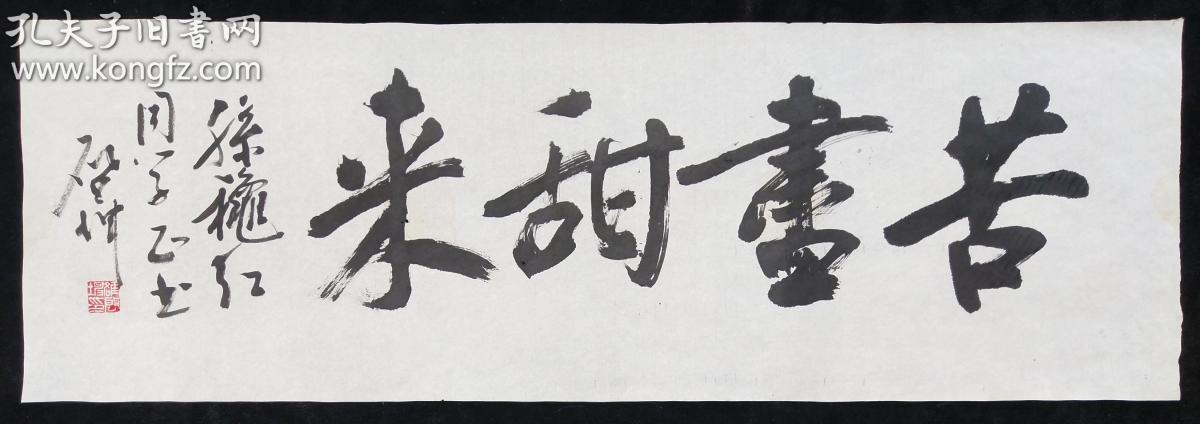 孔夫子旧书网
www.kongfz.com
苦盡甜来
孫穐红
同学正书